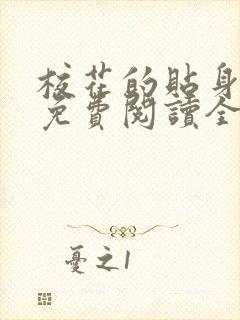 校花的貼身
免費閱讀全
憂之1